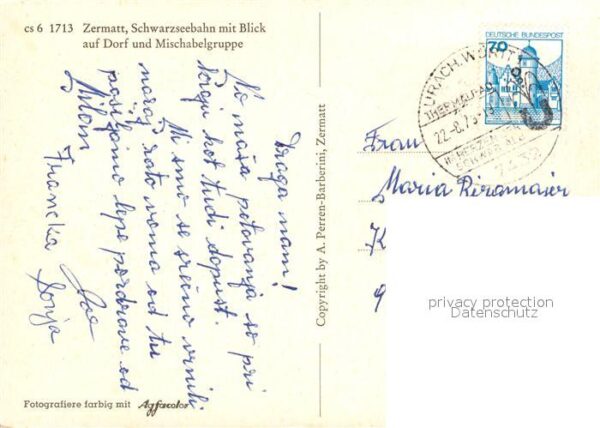 cs 6 1713 Zermatt, Schwarzseebahn mit Blick
auf Dorf und Mischabelgruppe
Draga mami!
No naša potovanja so pri
kraju kot tudi dopust.
Mi smo se srečno vrnili
nazaj zato vama od tu
pošiljamo lepe pozdrave od
Milom
Francka Sonja
Copyright by A. Perren-Barberini, Zermatt
70
DEUTSCHE BUNDESPOST
URACH, WÜRTT
THERMALBAD
22-8.78
7432
Frau
Maria
K
9
privacy protection
Datenschutz
Fotografiere farbig mit Agfacolor